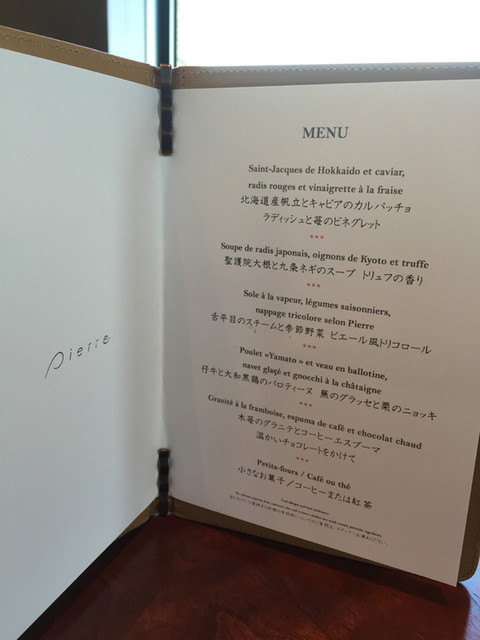 Pierre
MENU
Saint-Jacques de Hokkaido et caviar,
radis rouges et vinaigrette à la fraise
北海道産帆立とキャビアのカルパッチョ
ラディッシュと苺のビネグレット
***
Soupe de radis japonais, oignons de Kyoto et truffe
聖護院大根と九条ネギのスープ トリュフの香り
***
Sole à la vapeur, légumes saisonniers,
nappage tricolore selon Pierre
舌平目のスチームと季節野菜 ピエール風トリコロール
***
Poulet «Yamato » et veau en ballotine,
navet glaçé et gnocchi à la châtaigne
仔牛と大和黒鶏のバロティーヌ 蕪のグラッセと栗のニョッキ
***
Granité à la framboise, espuma de café et chocolat chaud
木苺のグラニテとコーヒーエスプーマ
温かいチョコレートをかけて
***
Petits-fours / Café ou thé
小さなお菓子／コーヒーまたは紅茶